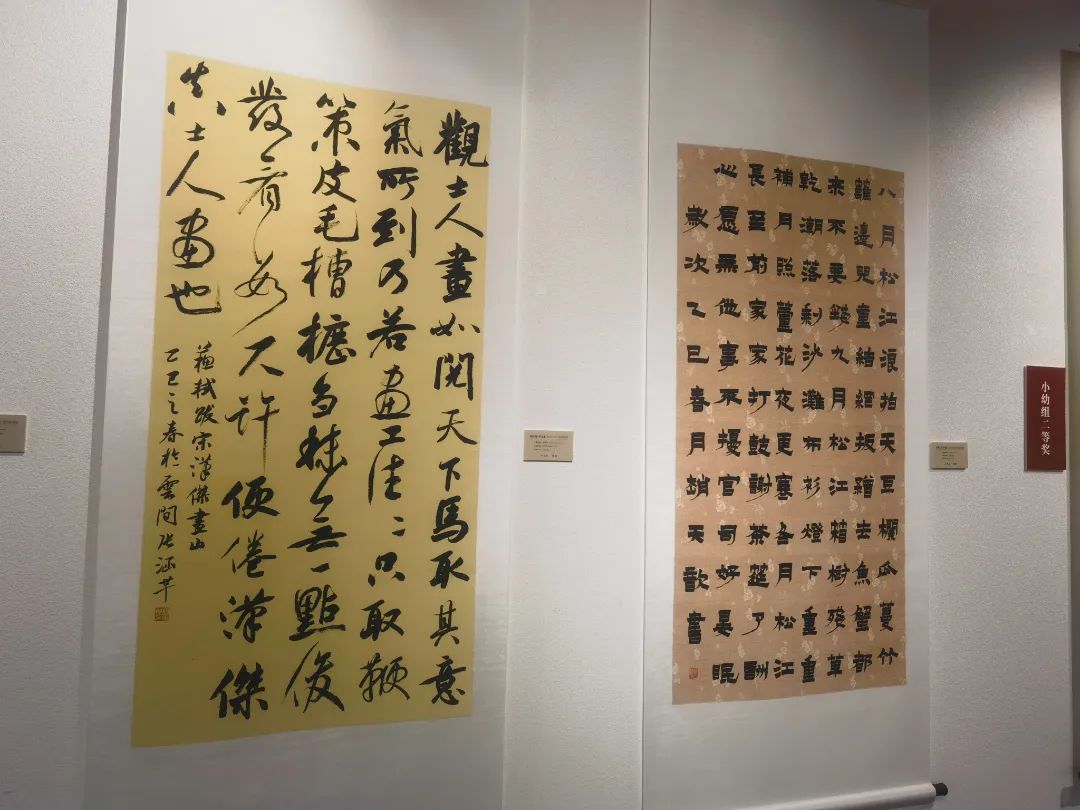 觀士人畫如閱天下馬取其意
氣所到乃若畫工往〻只取鞭
策皮毛槽櫪芻秣無一點俊
發看數尺許便倦漢傑
真士人畫也
蘇軾跋宋漢傑畫山
乙巳之春於雲間張涵芊
八月松江浪拍天豆欄瓜蔓竹
籬邊兒童結網扳繒去魚蟹都
來不要錢九月松江樹殘草
乾潮落剩沙灘布衫燈下重重
補月照蘆花夜更寒冬月松江
長至前家家打鼓謝茶筵了酬
心愿無他事不擾官司好晏眠
歲次乙巳春月趙天歆書
小幼组二等奖